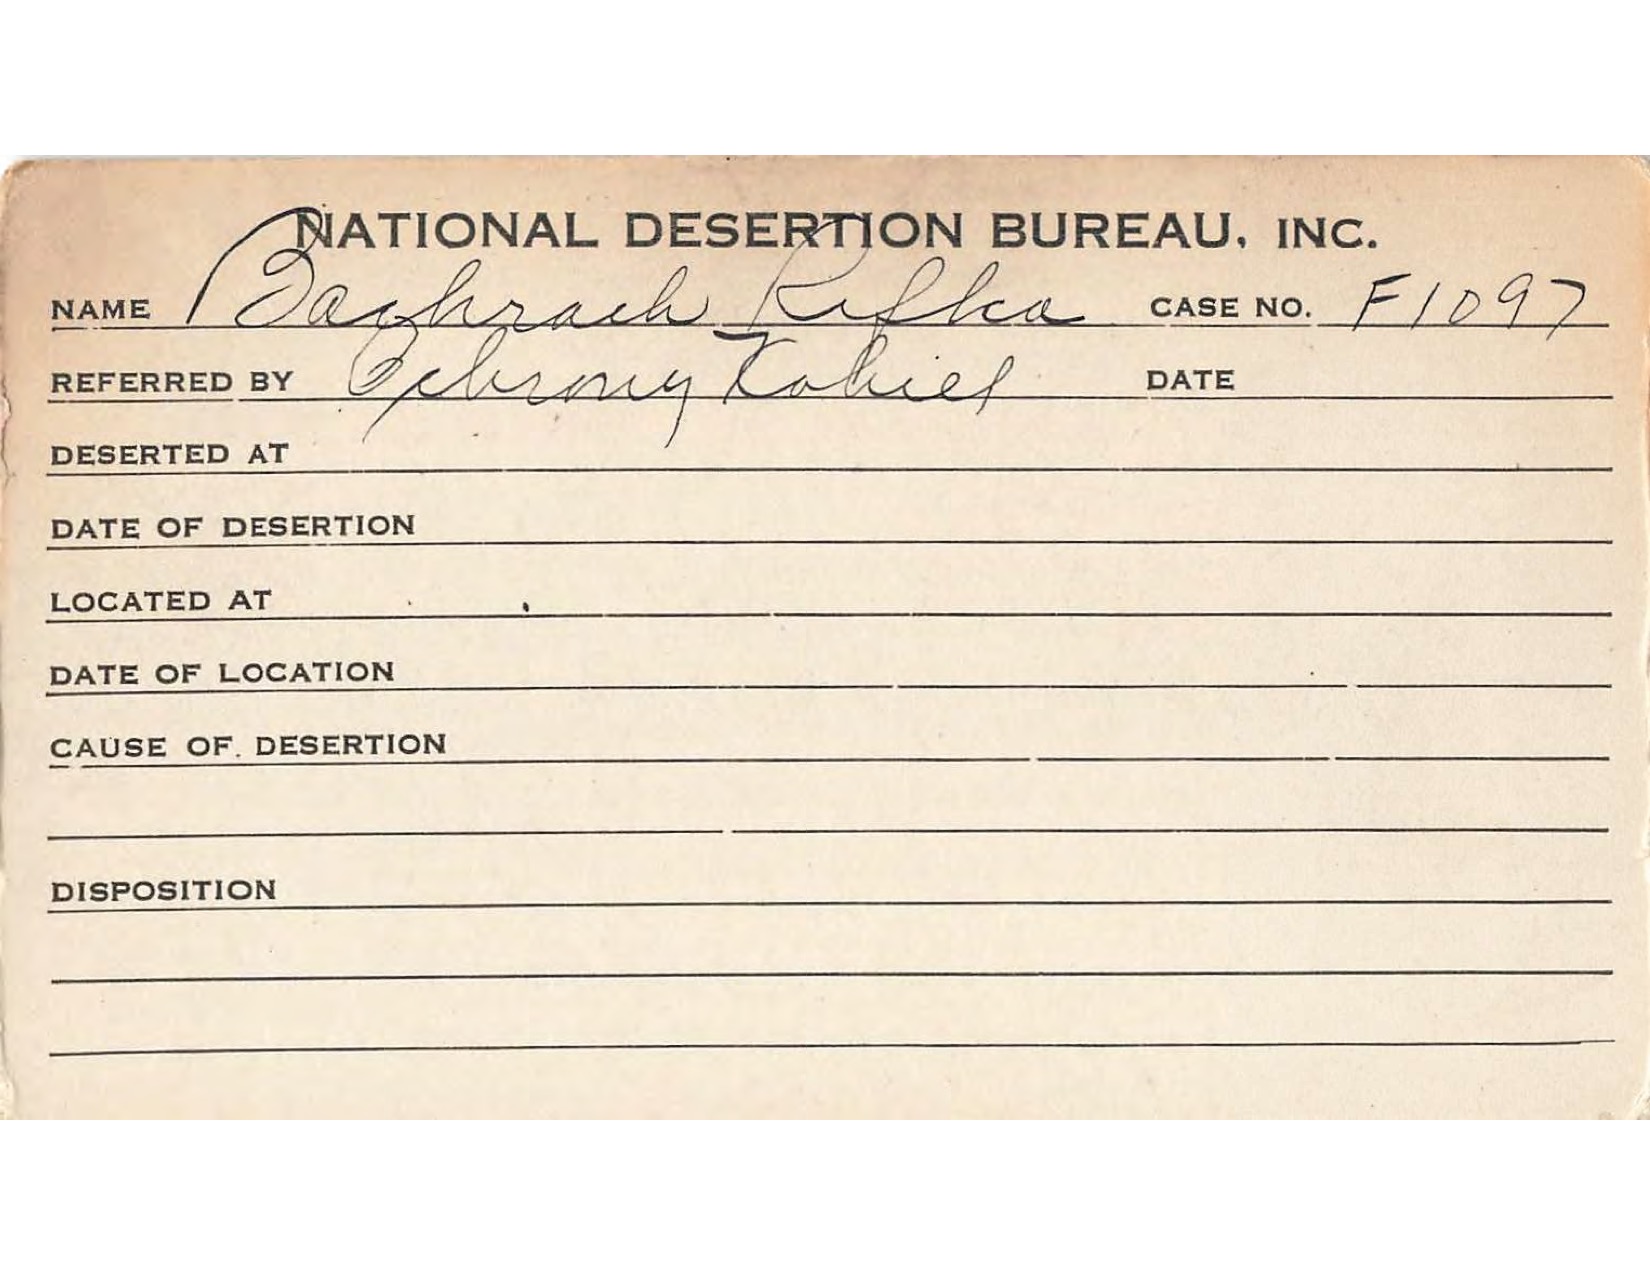 NATIONAL DESERTION BUREAU, INC.
NAME Bachrach Rifka CASE NO. F1097
REFERRED BY Ochrony Kobiet DATE
DESERTED AT
DATE OF DESERTION
LOCATED AT
DATE OF LOCATION
CAUSE OF DESERTION
DISPOSITION